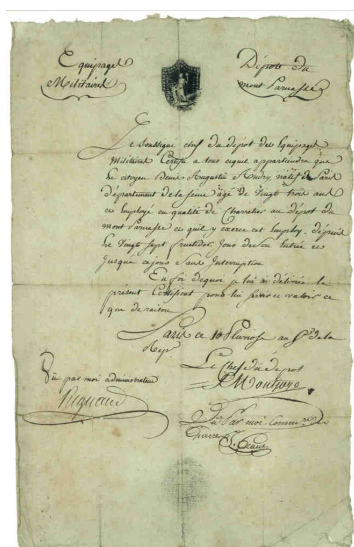 Equipages
Militaires
Dépôts du
mont Parnasse
Le Soussigné chef du dépôt des Equipages
Militaires Certifie a tous ceque appartiendra que
le citoyen Denis Augustin natif de Paris
département de la Seine âgé de Vingt trois ans
est Employé en qualité de Charretier au dépôt du
mont Parnasse et quil y exerce cet Employ depuis
le Vingt Sept fructidor Jour de son Entrée et
jusque cejour Sans Interruption
En foi dequoi je lui ai délivré le
présent Certificat pour lui servir et valoir ce
que de raison
Paris ce 10 Pluviose an de la
Rep
Le Chef du dépôt
Vû par moi administrateur
Vu Par moi Comm